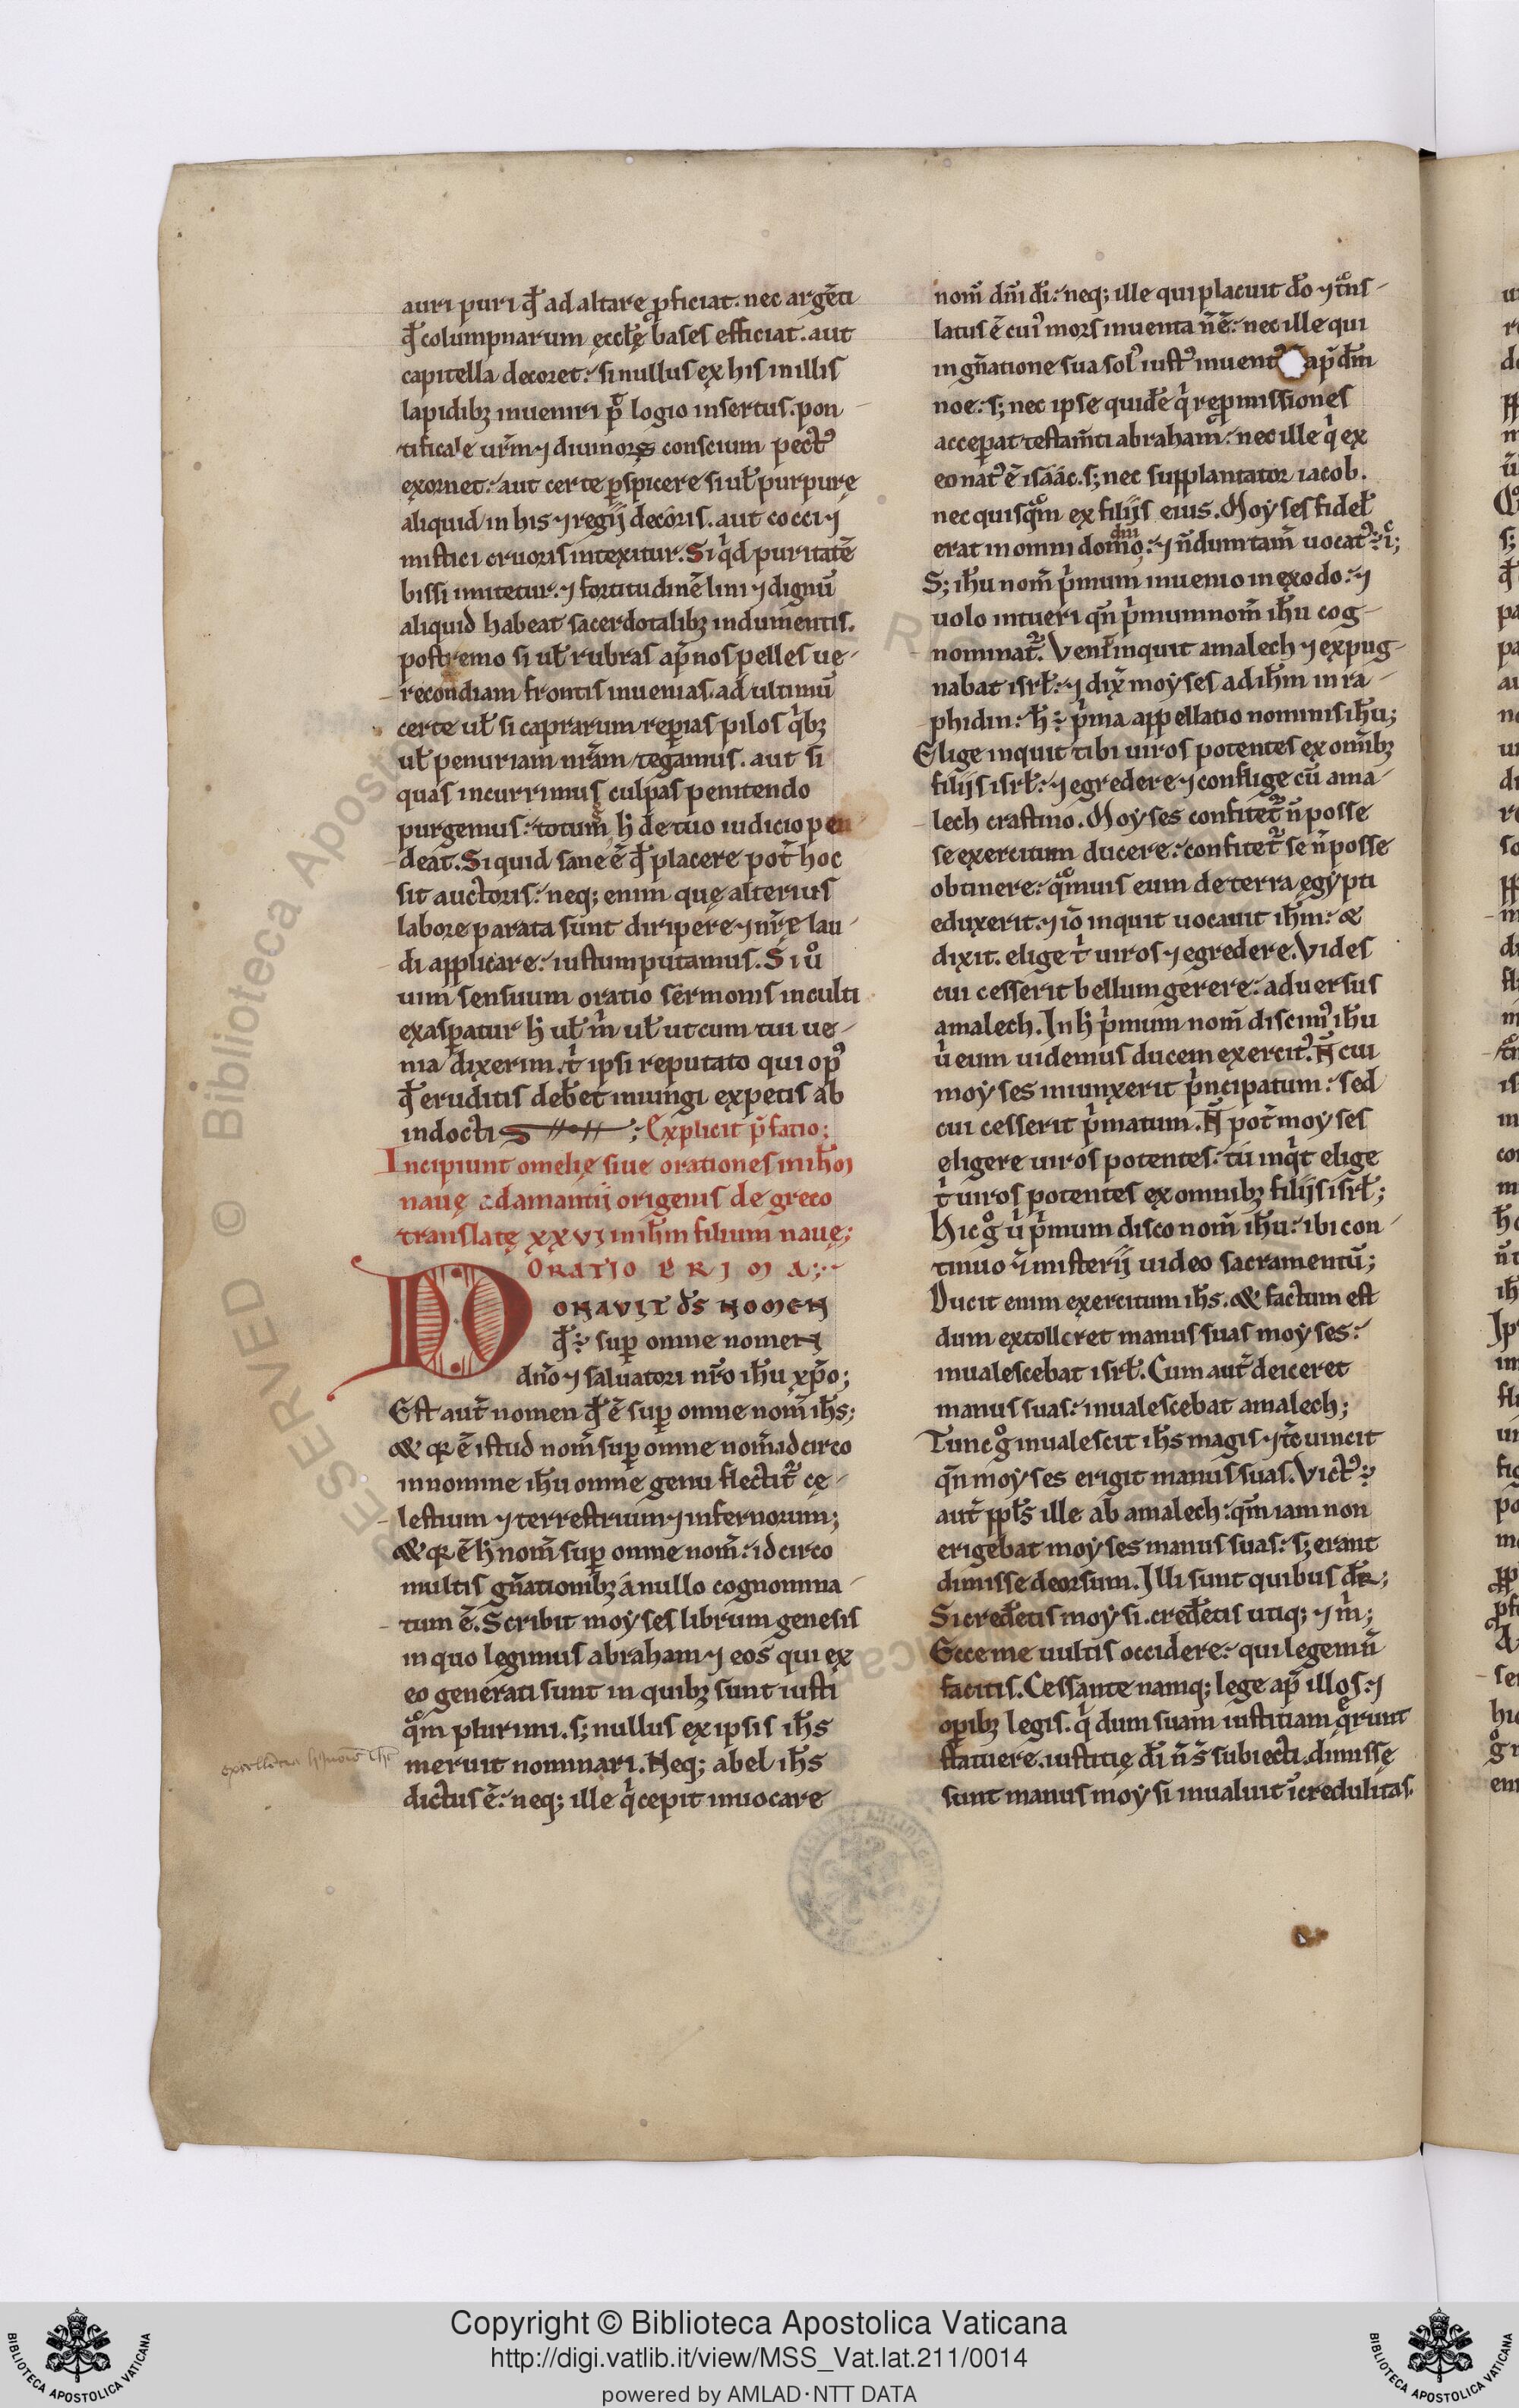 auri puri qđ ad altare ꝓficiat. nec argēti
qđ columpnarum ęccłę bases efficiat. aut
capitella decoret: si nullus ex his in illis
lapidibꝫ inueniri logio insertus. pon
tificale ur̄m ⁊ diuinoꝝ conscium pectꝰ
exornet: aut certe ꝑspicere si uł purpurę
aliquid in his ⁊ regii decoris. aut cocci ⁊
mistici cruoris intexitur. Si qid puritatē
bissi imitetur: ⁊ fortitudinē lini ⁊ dignū
aliquid habeat sacerdotalibꝫ indumentis.
postremo si uł rubras ap̄nos pelles ue
recondiam frontis inuenias. ad ultimū
certe uł si caprarum reꝑias pilos qibꝫ
uł penuriam nr̄am tegamus. aut si
quas incurrimus culpas penitendo
purgemus: totum h̓ de tuo iudicio pen
deat. Si quid sane ē qđ placere pot̄ hoc
sit auctoris: neqꝫ enim quę alterius
labore parata sunt diripere ⁊ nr̄ę lau
di applicare: iustum putamus. Si uͦ
uim sensuum oratio sermonis inculti
exasꝑatur h̓ uł m̓ uł utcum tui ue
nia dixerim. t̓ ipsi reputato qui opꝰ
qđ eruditis deb̄et iniungi expetis ab
indoctis; Explicit p̄fatio;
Incipiunt omelię siue orationes in ih̄m
nauę adamantii origenis de greco
translatę xxvj in ih̄m filium nauę;
ORATIO PRIMA;
DONAVIT d̄s NOMEN
qđ ÷ suꝑ omne nomen
dn̄o ⁊ saluatori nr̄o ih̄u xp̄o;
Est aut̄ nomen qđ ē suꝑ omne nom̄ ih̄s;
& qꝛ ē istud nom̄ suꝑ omne nom̄ idcirco
in nomine ih̄u omne genu flectit᷑ cę
lestium ⁊ terrestrium ⁊ infernorum;
& qꝛ ē h̓ nom̄ suꝑ omne nom̄: idcirco
multis gn̄ationibꝫ a nullo cognomina
tum ē. Scribit moyses librum genesis
in quo legimus abraham ⁊ eos qui ex
eo generati sunt in quibꝫ sunt iusti
qͦm plurimi. sꝫ nullus ex ipsis ih̄s
meruit nominari. Neqꝫ abel ih̄s
dictus ē: neqꝫ ille qi cepit inuocare
nom̄ dn̄i di: neqꝫ ille qui placuit do ⁊ tͣns
latus ē cuiꝰ mors inuenta n̄ ē: nec ille qui
in gn̄atione sua solꝰ iustꝰ inuentꝰ ap̄ dm̄
noe: sꝫ nec ipse quidē qi repromissiones
acceꝑat testam̄ti abraham: nec ille qi ex
eo natꝰ ē isaac. sꝫ nec supplantator iacob.
nec quisqͣm ex filiis eius. Moyses fideł
erat in omni domo: ⁊ n̄dum tam̄ uocatꝰ
Sꝫ ih̄u nom̄ pimum inuenio in exodo: ⁊
uolo intueri qn̄ pimum nom̄ ih̄u cog
nominat᷑. Venit inquit amalech ⁊ expug
nabat isrł: ⁊ dix̄ moyses ad ih̄m in ra
phidin: h̓ ÷ pima appellatio nominis ih̄u;
Elige inquit tibi uiros potentes ex om̄ibꝫ
filiis isrł: ⁊ egredere ⁊ conflige cū ama
lech crastino. Moyses confitet᷑ n̄ posse
se exercitum ducere: confitet᷑ se n̄ posse
obtinere: qͣmuis eum de terra egypti
eduxerit: ⁊ io inquit uocauit ih̄m: &
dixit. elige t̓ uiros ⁊ egredere. Vides
cui cesserit bellum gerere: aduersus
amalech. In h̓ pimum nom̄ discimꝰ ih̄u
ui eum uidemus ducem exercitꝰ. N̄ cui
moyses iniunxerit pincipatum: sed
cui cesserit pimatum. N̄ pot̄ moyses
eligere uiros potentes: tu inqit elige
t̓ uiros potentes ex omnibꝫ filiis isrł;
Hic gͦ ui pimum disco nom̄ ih̄u: ibi con
tinuo ⁊ misterii uideo sacramentū;
Ducit enim exercitum ih̄s. & factum est
dum extolleret manus suas moyses:
inualescebat isrł. Cum aut̄ deiceret
manus suas: inualescebat amalech;
Tunc gͦ inualescit ih̄s magis ⁊ tc̄ uincit
qn̄ moyses erigit manus suas. Victꝰ ÷
aut̄ ppłs ille ab amalech: qm̄ iam non
erigebat moyses manus suas: sꝫ erant
dimisse deorsum. Illi sunt quibus dr;
Si credetis moysi. credetis utiqꝫ ⁊ m̓;
Ecce me uultis occidere: qui legem n̄
facitis. Cessante namqꝫ lege ap̄ illos: ⁊
oꝑibꝫ legis. qi dum suam iustitiam qͣrunt
statuere. iustitię di n̄ s̄ subiecti. dimissę
sunt manus moysi inualuit īcredulitas.